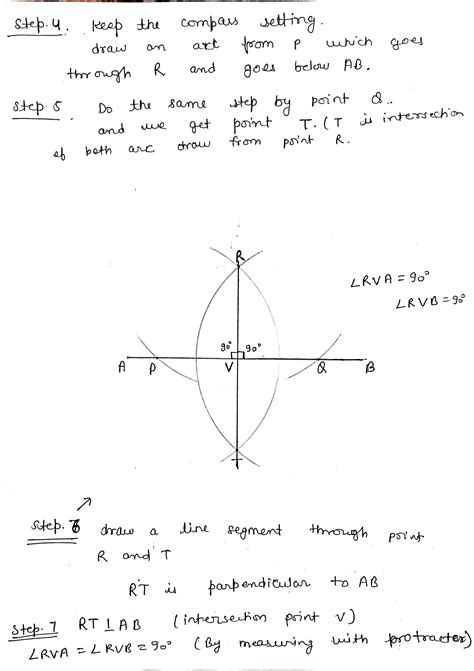 Step. 4. Keep the compass setting.
draw an arc from P which goes
through R and goes below AB.
Step. 5 Do the same step by point Q..
and we get point T. (T is intersection
of both arc draw from point R.
R
∠RVA = 90°
∠RVB = 90°
90° 90°
A P V Q B
T
Step. 6 draw a line segment through point
R and T
RT is parpendicular to AB
Step. 7 RT ⊥ AB (intersection point V)
∠RVA = ∠RVB = 90° (By measuring with protracter)